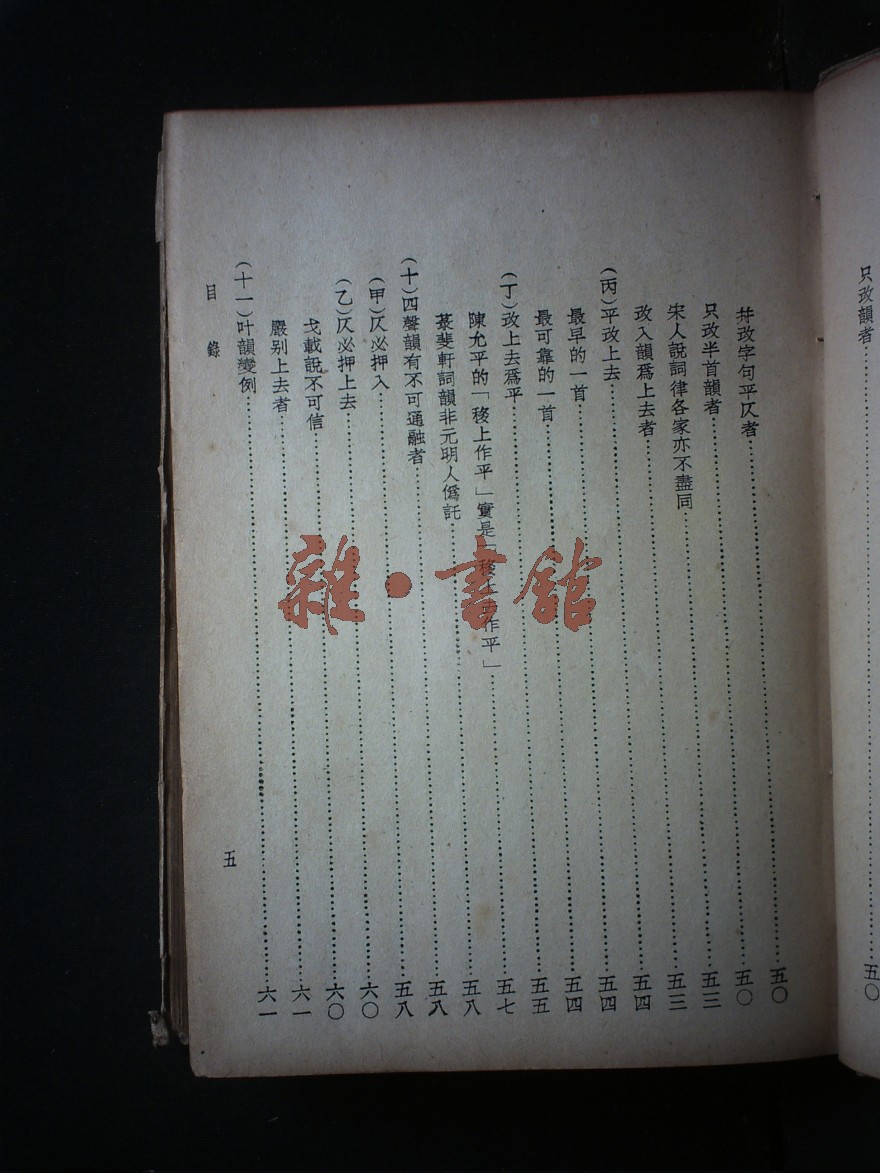 只改韻者……五〇
幷改字句平仄者……五〇
只改半首韻者……五〇
宋人說詞律各家亦不盡同……五三
改入韻爲上去者……五三
(丙)平改上去……五四
最早的一首……五四
最可靠的一首……五四
(丁)改上去爲平……五五
陳允平的「移上作平」實是「移上去作平」……五七
菉斐軒詞韻非元明人僞託……五八
(十)四聲韻有不可通融者……五八
(甲)仄必押入……五八
(乙)仄必押上去……六〇
戈載說不可信……六〇
嚴別上去者……六一
(十一)叶韻變例……六一
目錄
五
雜·書館